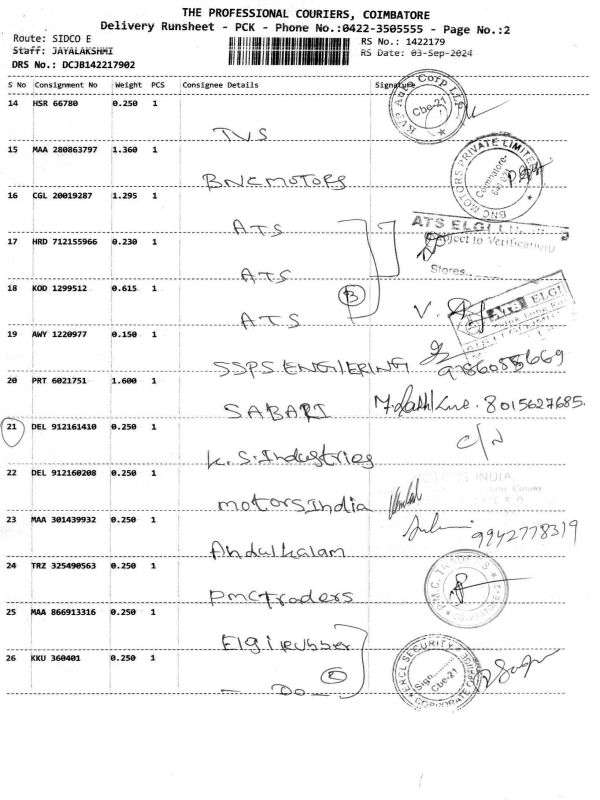 THE PROFESSIONAL COURIERS, COIMBATORE
Delivery Runsheet - PCK - Phone No.:0422-3505555 - Page No.:2
Route: SIDCO E RS No.: 1422179
Staff: JAYALAKSHMI RS Date: 03-Sep-2024
DRS No.: DCJB142217902
S No Consignment No Weight PCS Consignee Details Signature
14 HSR 66780 0.250 1
Cbe-21
TVS
15 MAA 280863797 1.360 1
BNC MOTORS PRIVATE LIMITED
Coimbatore-
BNC MOTORS
16 CGL 20019287 1.295 1
ATS ATS ELGI
17 HRD 712155966 0.230 1
Subject to Verification
Stores
ATS
18 KOD 1299512 0.615 1
B
ATS ELGI
ATS
19 AWY 1220977 0.150 1
SSPS ENGIERING 9786055669
20 PRT 6021751 1.600 1
SABARI 8015627685.
21 DEL 912161410 0.250 1
C/N
K.S.Industries
22 DEL 912160208 0.250 1
MOTORS INDIA
motorsIndia
23 MAA 301439932 0.250 1
9942778319
Abdulkalam
24 TRZ 325490563 0.250 1
P.M.C. TRADERS
PMCTraders
25 MAA 866913316 0.250 1
Elgirubber
26 KKU 360401 0.250 1
ERCL SECURITY
Sign
Cbe-21
CORPORATE OFFICE
- Do -